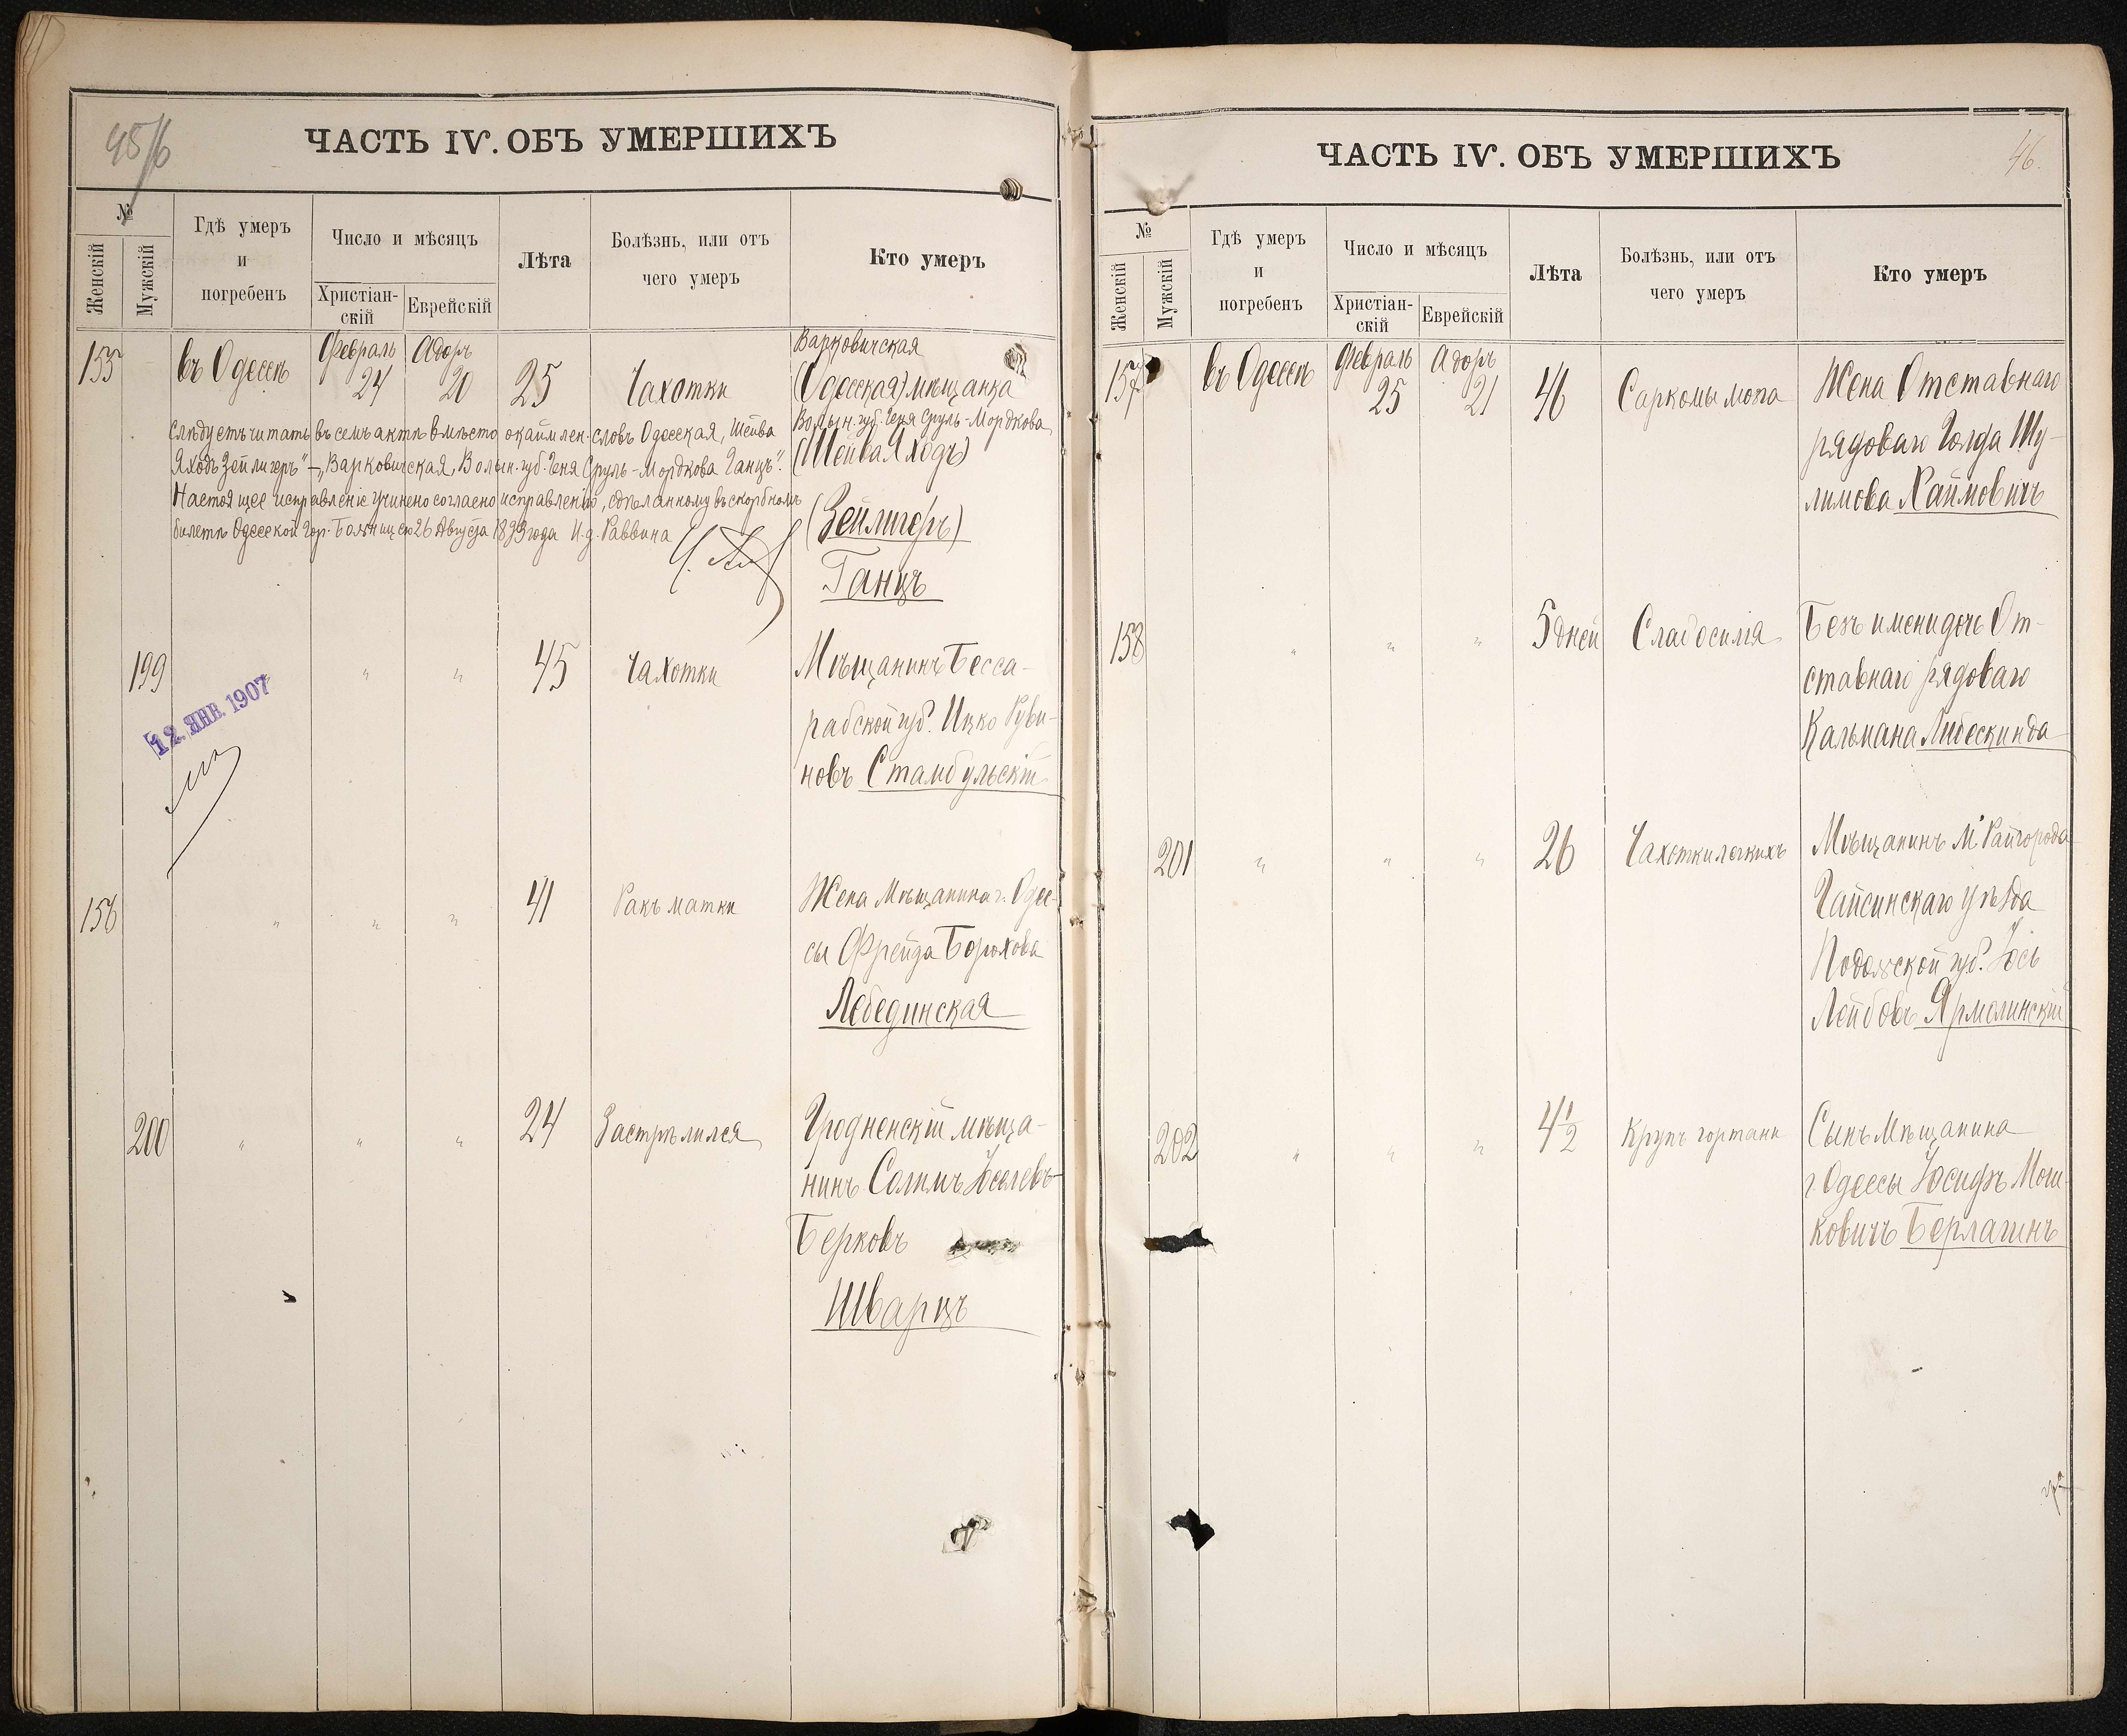 45/6
ЧАСТЬ IV. ОБЪ УМЕРШИХЪ
№
Женскій
Мужскій
Гдѣ умеръ
и
погребенъ
Число и мѣсяцъ
Христіан-
скій
Еврейскій
Лѣта
Болѣзнь, или отъ
чего умеръ
Кто умеръ
155 въ Одессѣ Февраль 24 Адоръ 20 25 Чахотки
Варковичская
(Одесская) мѣщанка
Волын. губ. Геня Сруль-Мордкова
(Шейва Яходъ)
(Зейлигеръ)
Ганцъ
Слѣдуетъ читать въ семъ актѣ вмѣсто окаймлен. словъ Одесская, Шейва
Яходъ Зейлигеръ" – „Варковичская, Волын. губ. Геня Сруль-Мордкова Ганцъ".
Настоящее исправленіе учинено согласно исправленію, сдѣланному въ скорбномъ
билетѣ Одесской Гор. Больницею 26 Августа 1893 года И. д. Раввина
199 " " 45 Чахотки
Мѣщанинъ Бесса-
рабской губ. Ицко Руви-
новъ Стамбульскій
12. ЯНВ. 1907
156 " " " 41 Ракъ матки
Жена Мѣщанина г. Одес-
сы Фрейда Борохова
Лебединская
200 " " " 24 Застрѣлился
Гродненскій мѣща-
нинъ Солимъ Іоселевъ-
Берковъ
Шварцъ
46.
ЧАСТЬ IV. ОБЪ УМЕРШИХЪ
№
Женскій
Мужскій
Гдѣ умеръ
и
погребенъ
Число и мѣсяцъ
Христіан-
скій
Еврейскій
Лѣта
Болѣзнь, или отъ
чего умеръ
Кто умеръ
157 въ Одессѣ Февраль 25 Адоръ 21 46 Саркомы мозга
Жена Отставнаго
рядоваго Голда Шу-
лимова Хаймовичъ
158 " " " 5 дней Слабосилія
Безъ имени дочь От-
ставнаго рядоваго
Кальмана Либескинда
201 " " " 26 Чахотки легкихъ
Мѣщанинъ М. Райгорода
Гайсинскаго уѣзда
Подольской губ. Іось
Лейбовъ Ярмолинскій
202 " " " 4½ Крупъ гортани
Сынъ Мѣщанина
г. Одессы Іосифъ Мош-
ковичъ Берлагинъ